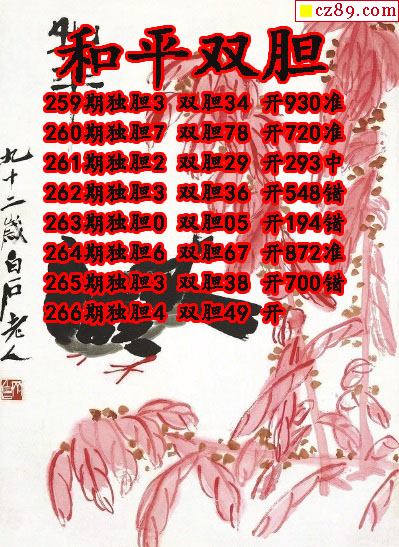 cz89.com
和平双胆
259期独胆3 双胆34 开930准
260期独胆7 双胆78 开720准
261期独胆2 双胆29 开293中
262期独胆3 双胆36 开548错
263期独胆0 双胆05 开194错
264期独胆6 双胆67 开872准
265期独胆3 双胆38 开700错
266期独胆4 双胆49 开
九十二歲白石老人